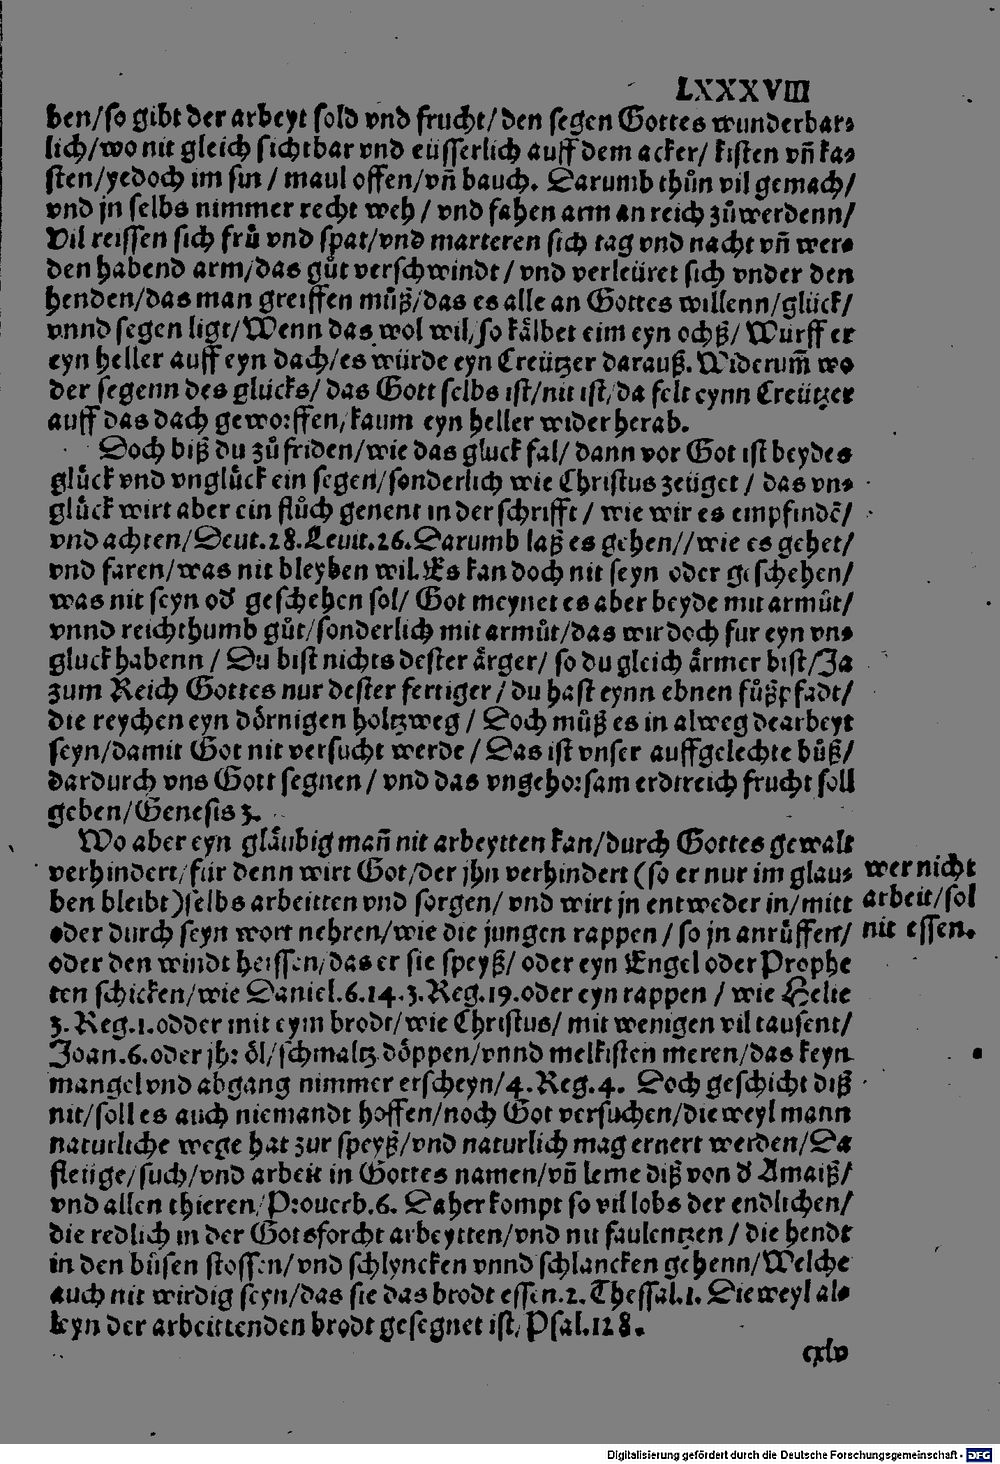 LXXXVIII
ben/so gibt der arbeyt sold vnd frucht/den segen Gottes wunderbar⸗
lich/wo nit gleich sichtbar vnd eüsserlich auff dem acker/ kisten vñ ka⸗
sten/yedoch im sin / maul offen/vñ bauch. Darumb thůn vil gemach/
vnd jn selbs nimmer recht weh / vnd fahen arm an reich zůwerdenn/
Vil reissen sich frů vnd spat/vnd marteren sich tag vnd nacht vñ wer⸗
den habend arm/das gůt verschwindt / vnd verleüret sich vnder den
henden/das man greiffen můß/das es alle an Gottes willenn/glück/
vnnd segen ligt/Wenn das wol wil/so kälbet eim eyn ochß/ Wurff er
eyn heller auff eyn dach/es würde eyn Creützer darauß. Widerum̃ wo
der segenn des glücks/ das Gott selbs ist/nit ist/da felt eynn Creützer
auff das dach geworffen/kaum eyn heller wider herab.
Doch biß du zů friden/wie das gluck fal/ dann vor Got ist beydes
glück vnd vnglück ein segen/sonderlich wie Christus zeüget / das vn⸗
glück wirt aber ein flůch genent in der schrifft / wie wir es empfindē/
vnd achten/Deut.28.Leuit.26.Darumb laß es gehen//wie es gehet/
vnd faren/was nit bleyben wil.Es kan doch nit seyn oder geschehen/
was nit seyn oď geschehen sol/ Got meynet es aber beyde mit armůt/
vnnd reichthumb gůt/sonderlich mit armůt/das wir doch fur eyn vn⸗
gluck habenn / Du bist nichts dester ärger/ so du gleich ärmer bist/Ja
zum Reich Gottes nur dester fertiger / du hast eynn ebnen fůßpfadt/
die reychen eyn dörnigen holtzweg / Doch můß es in alweg dearbeyt
seyn/damit Got nit versucht werde / Das ist vnser auffgelechte bůß/
dardurch vns Gott segnen / vnd das vngehorsam erdtreich frucht soll
geben/Genesis 3.
Wo aber eyn gläubig mañ nit arbeytten kan/durch Gottes gewalt
verhindert/für denn wirt Got/der jhn verhindert (so er nur im glau⸗
ben bleibt)selbs arbeitten vnd sorgen/ vnd wirt jn entweder in/mitt
oder durch seyn wort nehren/wie die jungen rappen / so jn anrůffen/
oder den windt heissen/das er sie speyß/ oder eyn Engel oder Prophe
ten schicken/wie Daniel.6.14.3.Reg.19.oder eyn rappen / wie Helie
3.Reg.1.odder mit eym brodt/wie Christus/ mit wenigen vil tausent/
Joan.6.oder jhr öl/schmaltz döppen/vnnd melkisten meren/das keyn
mangel vnd abgang nimmer erscheyn/4.Reg.4. Doch geschicht diß
nit/soll es auch niemandt hoffen/noch Got versuchen/die weyl mann
naturliche wege hat zur speyß/vnd naturlich mag ernert werden/Da
fleiige/such/vnd arbeit in Gottes namen/vñ lerne diß von ď Amaiß/
vnd allen thieren/Prouerb.6. Daher kompt so vil lobs der endlichen/
die redlich in der Gotsforcht arbeytten/vnd nit faulentzen / die hendt
in den bůsen stossen/vnd schlyncken vnnd schlancken gehenn/Welche
auch nit wirdig seyn/das sie das brodt essen.2.Thessal.1. Die weyl al⸗
leyn der arbeittenden brodt gesegnet ist/Psal.128.
wer nicht
arbeit/sol
nit essen.
cxlv
Digitalisierung gefördert durch die Deutsche Forschungsgemeinschaft - DFG